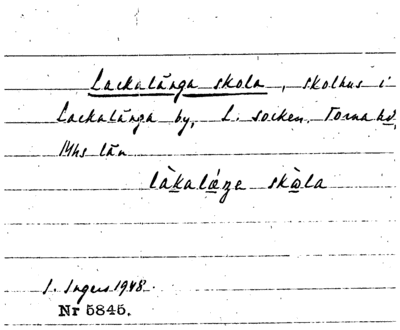 Lackalänga skola, skolhus i
Lackalänga by, L. socken. Torna hd,
Mhs län
làkalǽŋa skòla
I. Ingers 1948.
Nr 5845.